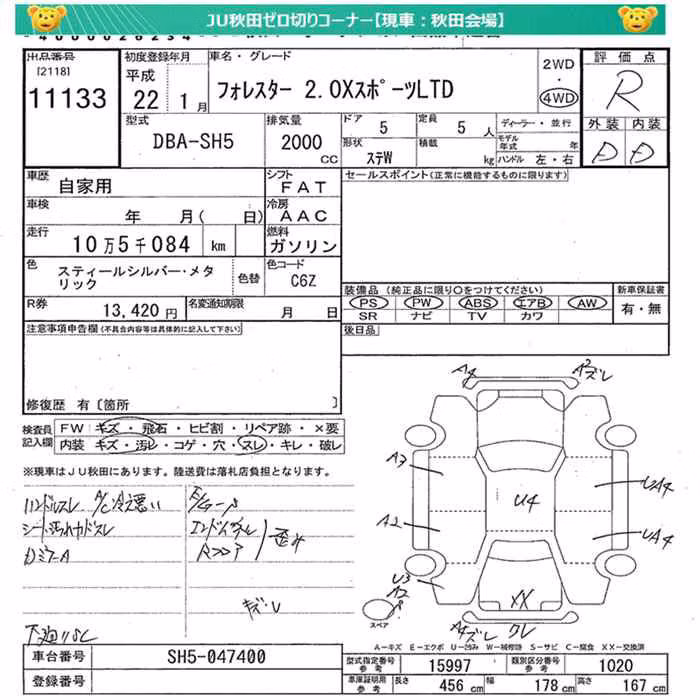 JU秋田ゼロ切りコーナー【現車：秋田会場】
出品番号 [2118] 11133
初度登録年月 平成 22 1月
車名・グレード フォレスター 2.0XスポーツLTD
2WD・4WD
評価点 R
外装 D 内装 D
型式 DBA-SH5
排気量 2000 CC
ドア 5 定員 5人 ディーラー・並行
形状 ステW 積載 kg モデル年式 年 ハンドル 左・右
車歴 自家用
シフト FAT
セールスポイント(正常に機能するものに限ります)
車検 年 月( 日)
冷房 AAC
走行 10万5千084 km
燃料 ガソリン
色 スティールシルバー・メタリック 色替
色コード C6Z
装備品(純正品に限り○をつけてください) 新車保証書
PS PW ABS エアB AW 有・無
SR ナビ TV カワ
R券 13,420円 名変通知期限 月 日
後日品
注意事項申告欄(不具合内容等は具体的に記入して下さい)
修復歴 有〔箇所 〕
検査員記入欄 FW キズ・飛石・ヒビ割・リペア跡・×要
内装 キズ・汚レ・コゲ・穴・スレ・キレ・破レ
※現車はJU秋田にあります。陸送費は落札店負担となります。
ハンドルスレ A/C冷え悪い
エンドパネル
Rフロア
歪み
キズレ
下廻りSC
A4 A2ズレ
A3
U4
UA4
A2
UA4
U3
A2
XX
スペア
A4ズレ クレ
A－キズ E－エクボ U－凹み W－補修跡 S－サビ C－腐食 XX－交換済
車台番号 SH5-047400
型式指定番号 参考 15997 類別区分番号 参考 1020
登録番号
車庫証明用 参考 長さ 456cm 幅 178cm 高さ 167cm